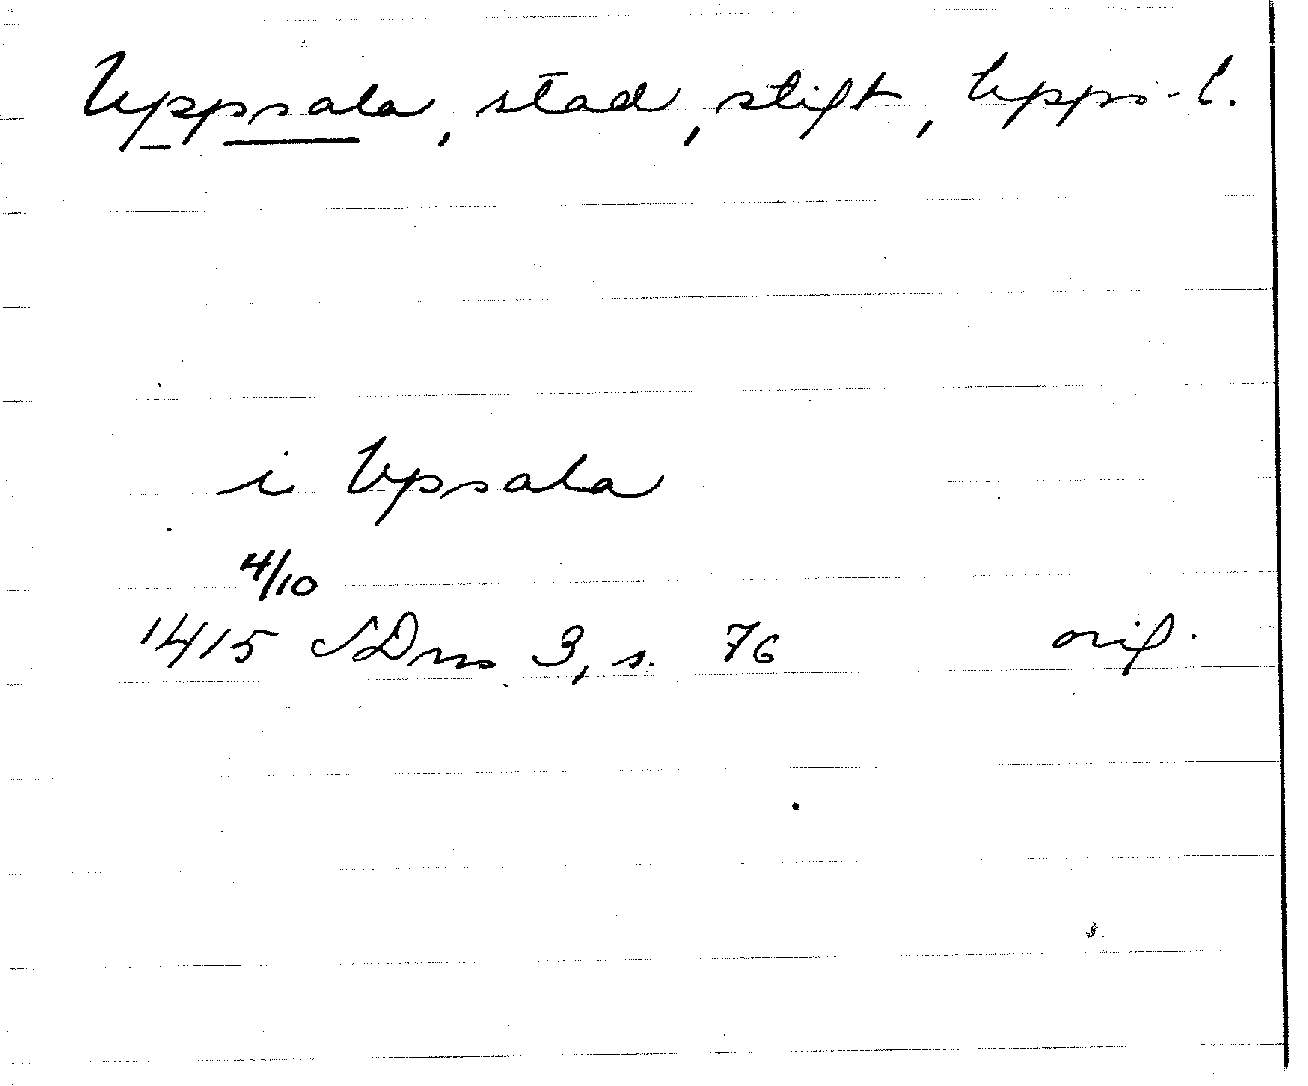 Uppsala, stad, stift, Upps. l.
i Upsala
4/10
1415 SDns 3, s. 76 orig.